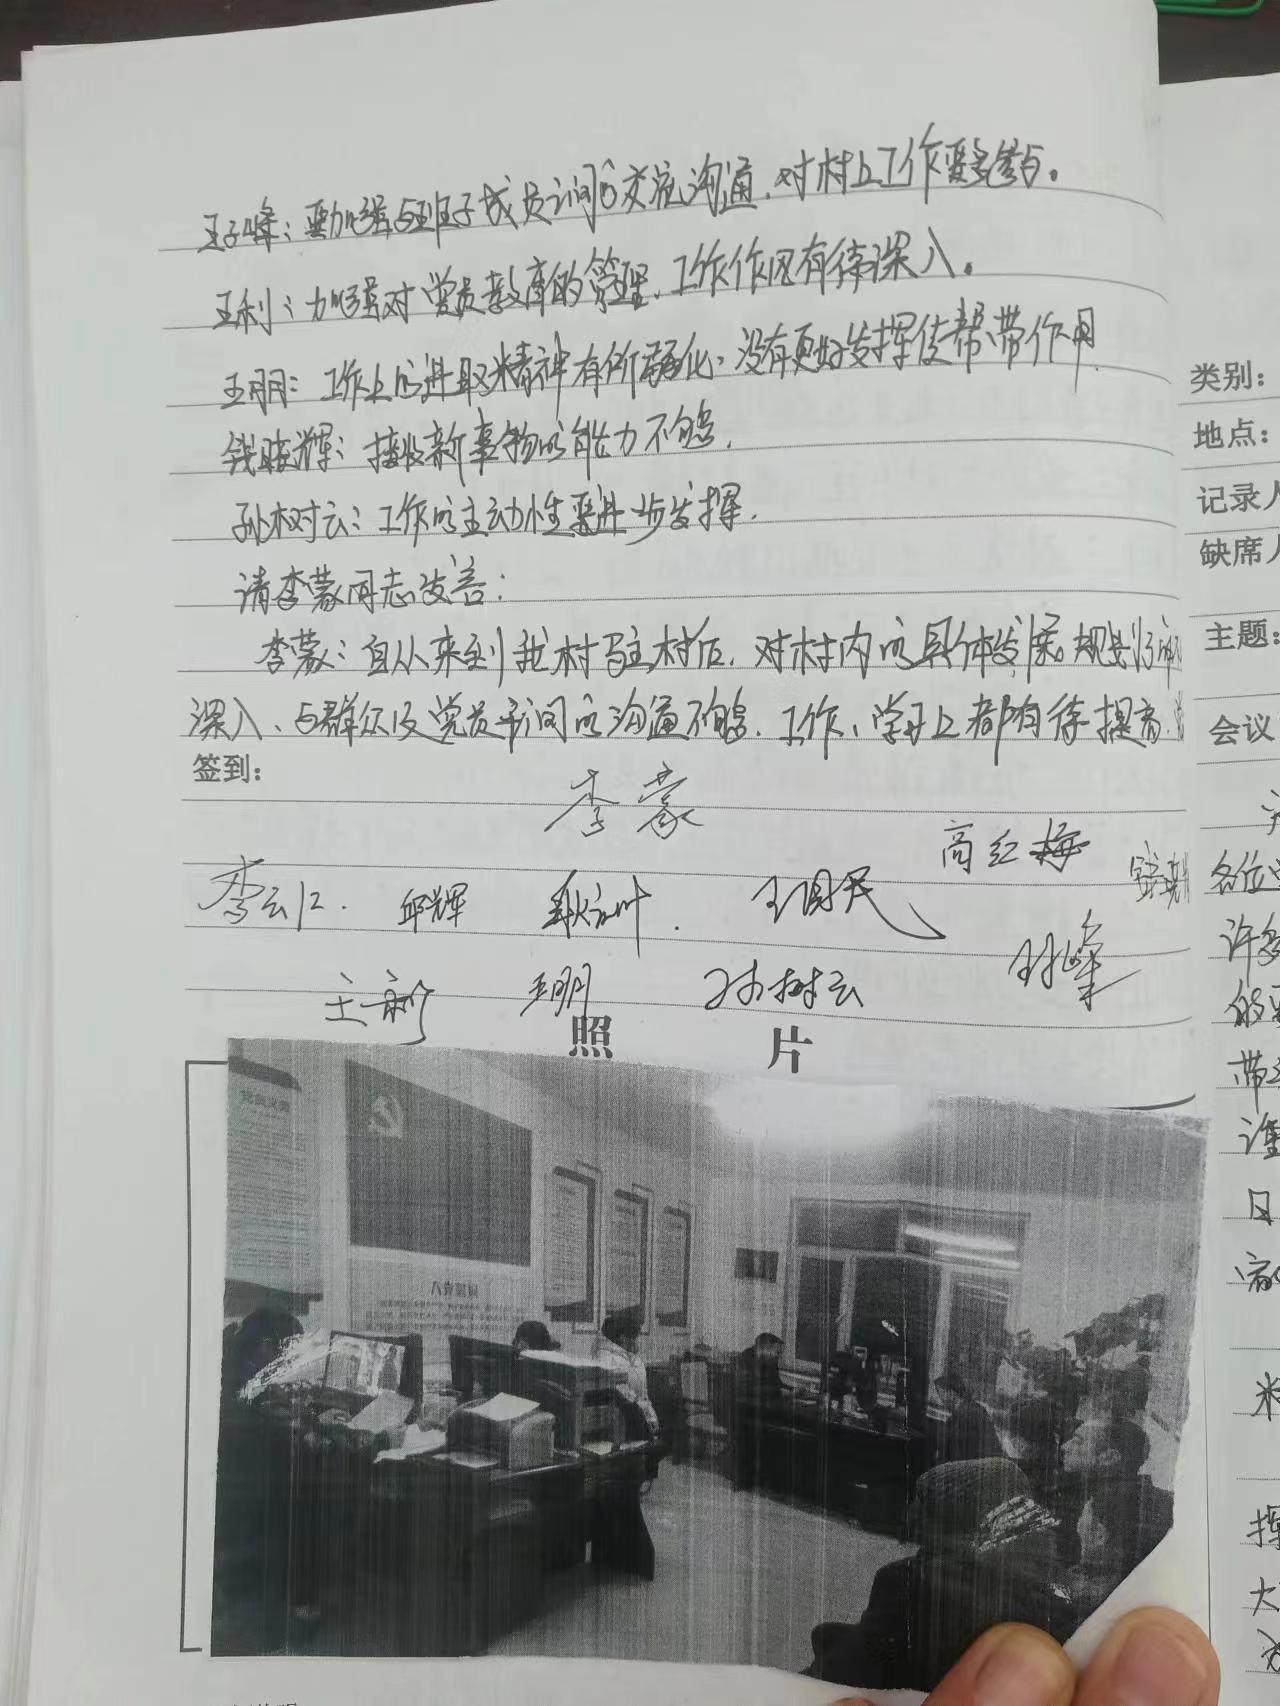 王子峰：要加强与班子成员之间的交流沟通，对村上工作要多参与。
王利：加强对党员教育的管理，工作作风有待深入。
王明：工作上的进取精神有所弱化，没有更好发挥传帮带作用.
钱晓辉：接收新事物的能力不够.
孙树云：工作的主动性要进一步发挥.
请李蒙同志发言：
李蒙：自从来到我村驻村后，对村内的具体发展规划了解
深入、与群众及党员之间的沟通不够. 工作、学习上都有待提高.
签到：
李蒙
高红梅
李云 邱辉 王国民
王利 王明 孙树云 峰
照 片
类别：
地点：
记录人
缺席人
主题：
会议
各位
许多
的
带
谨
日
大